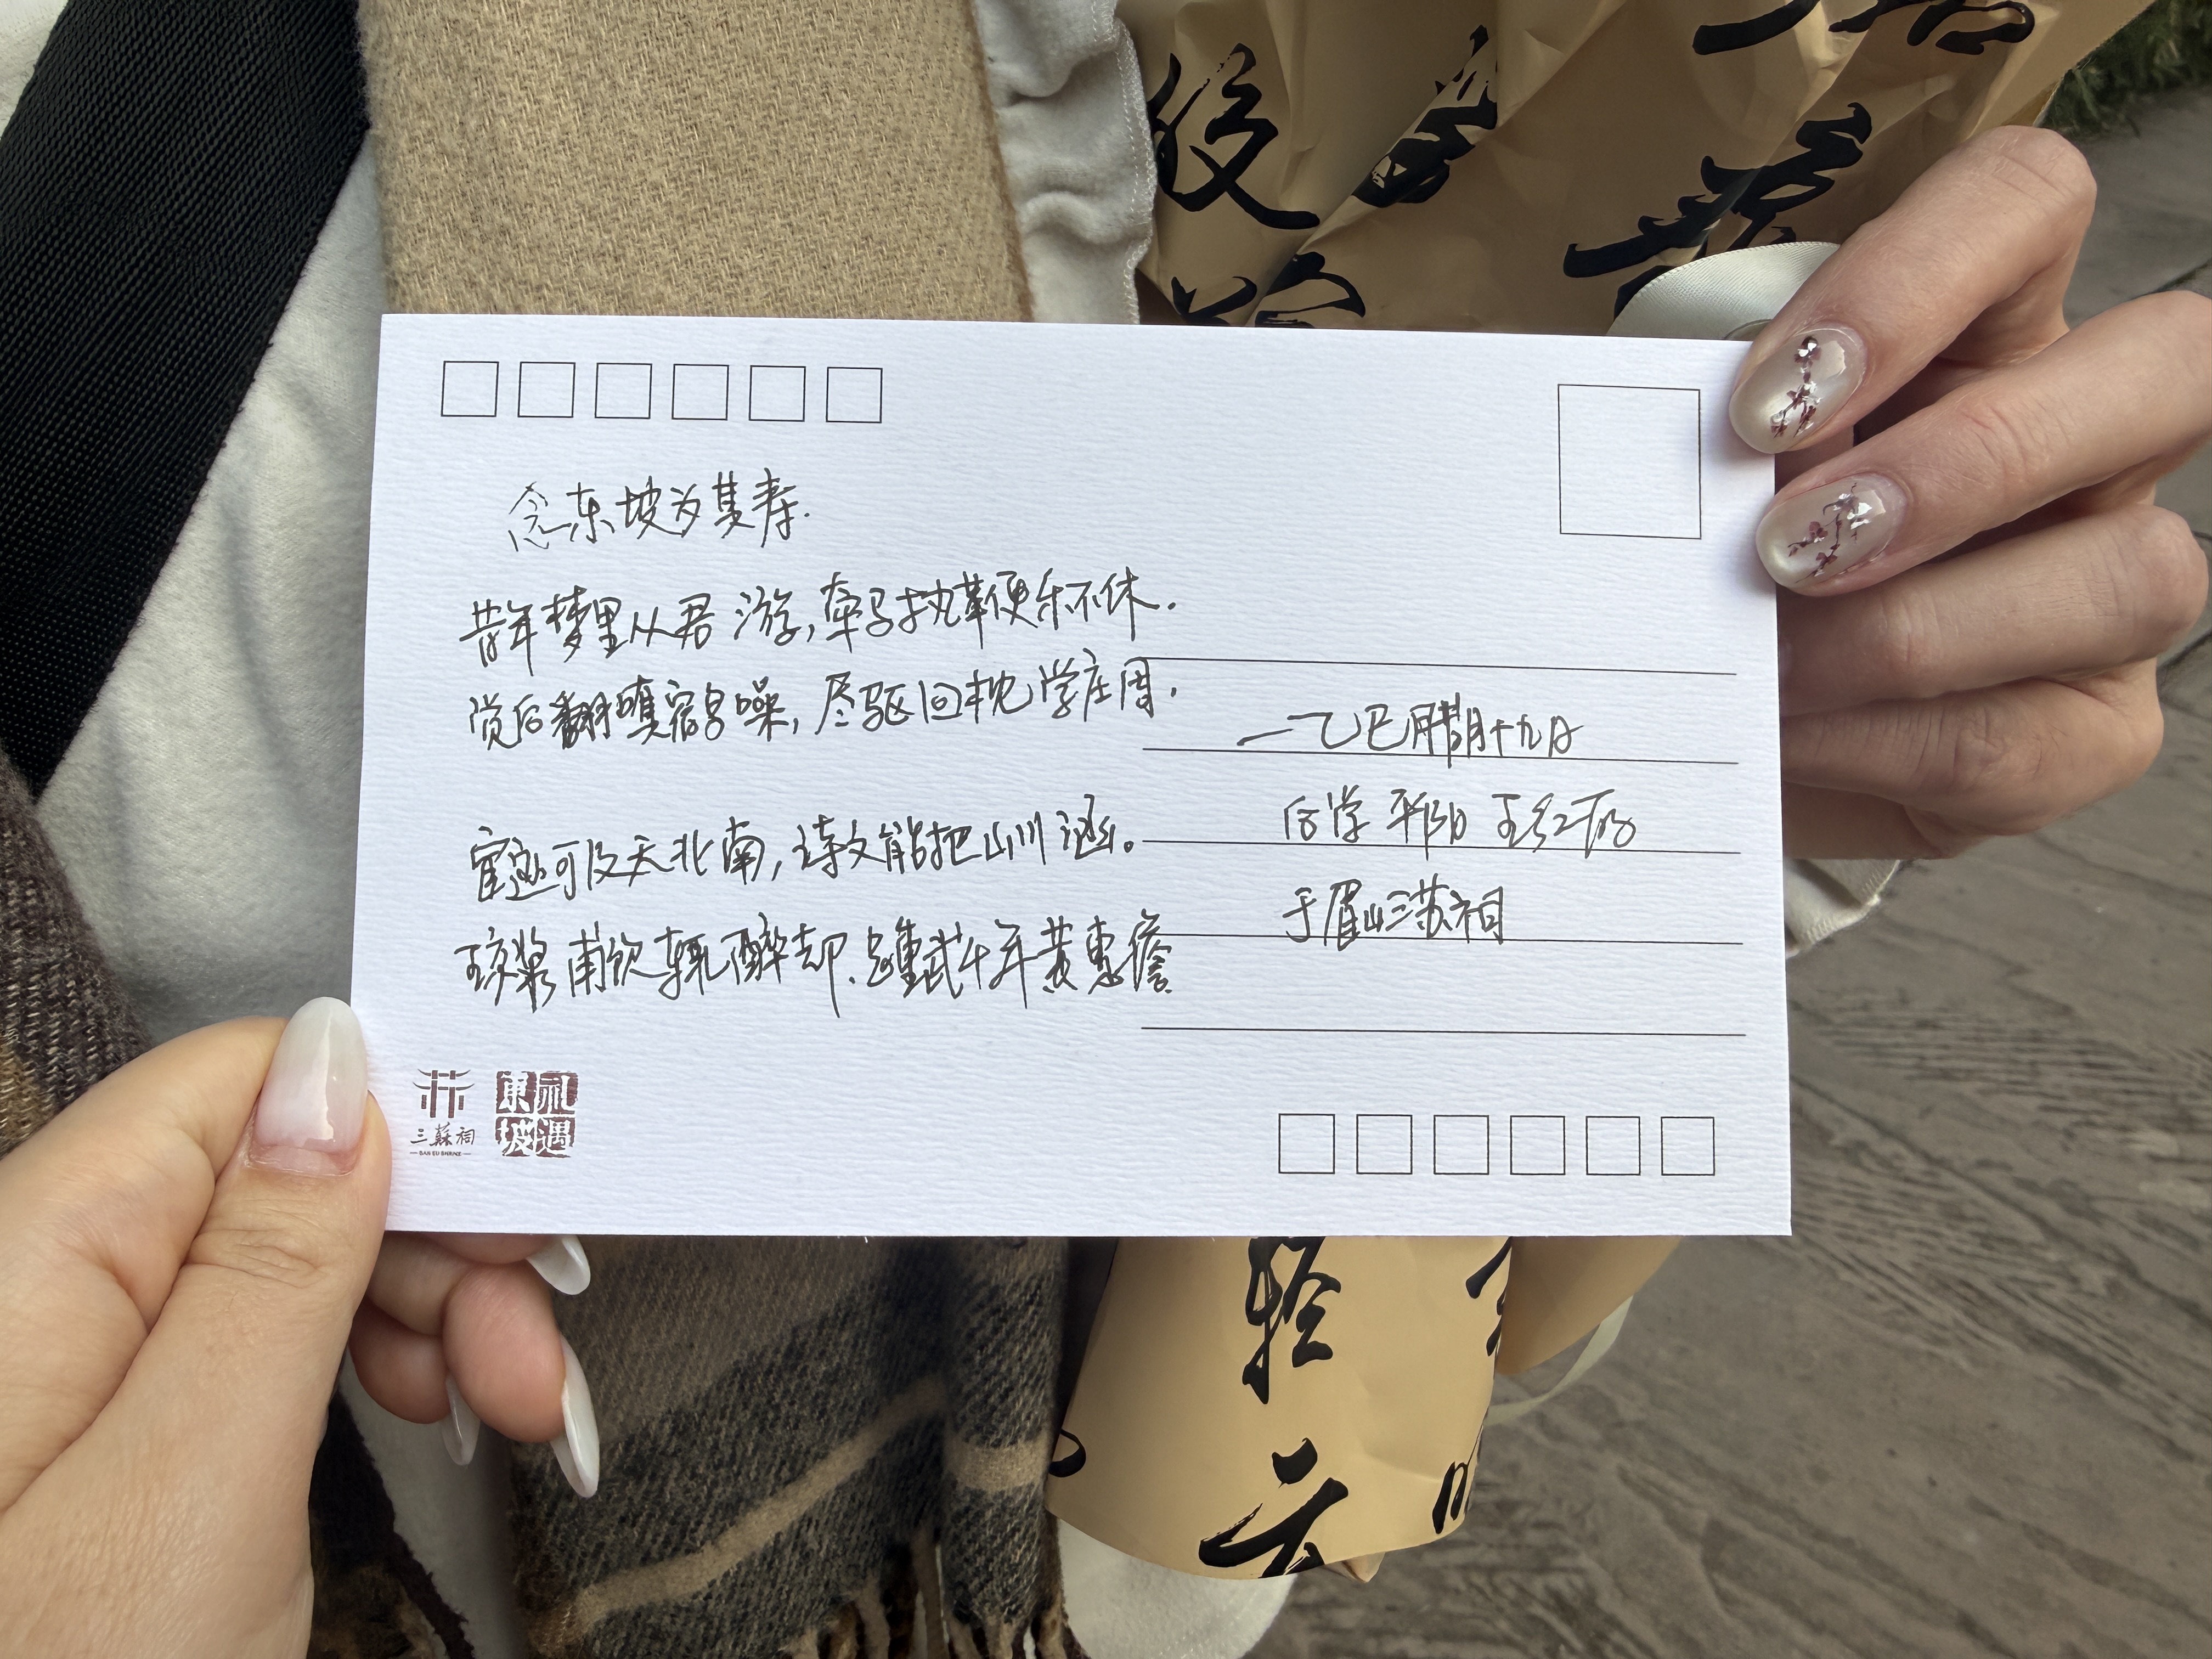 念东坡为其寿.
昔年梦里从君游,牵马执革便乐不休.
觉后翻嗔宿鸟噪,尽驱回枕学庄周.
宦迹可及天北南,诗文能把山川涵。
琼浆甫饮辄醉却.总重试十年黄惠儋
—乙巳腊月十九日
后学 平阳
于眉山三苏祠
三蘇祠
SAN SU SHRINE
東坡
礼遇
轻
云